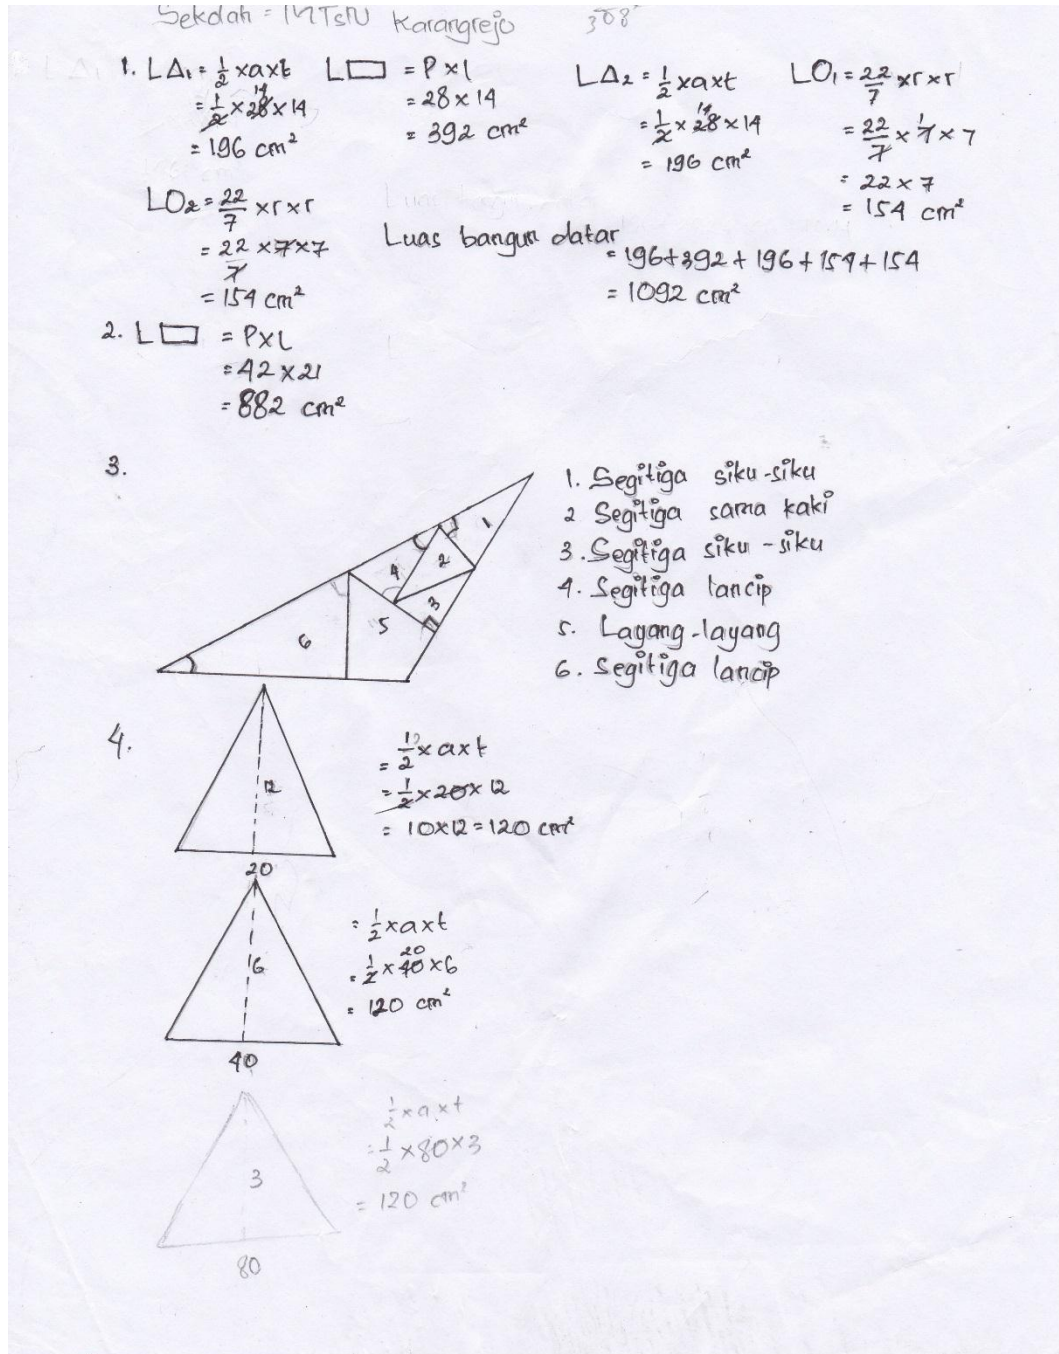 Sekolah = MTsN Karangrejo 308
1. L△₁ = 1/2 x a x t
= 1/2 x 28 14 x 14
= 196 cm²
L▭ = P x l
= 28 x 14
= 392 cm²
L△₂ = 1/2 x a x t
= 1/2 x 28 14 x 14
= 196 cm²
LO₁ = 22/7 x r x r
= 22/7 x 7 1 x 7
= 22 x 7
= 154 cm²
LO₂ = 22/7 x r x r
= 22/7 x 7 x 7
= 154 cm²
Luas bangun datar
= 196 + 392 + 196 + 154 + 154
= 1092 cm²
2. L▭ = P x L
= 42 x 21
= 882 cm²
3.
1
2
3
4
5
6
1. Segitiga siku-siku
2 Segitiga sama kaki
3. Segitiga siku-siku
4. Segitiga lancip
5. Layang-layang
6. Segitiga lancip
4.
12
20
= 1/2 x a x t
= 1/2 x 20 x 12
= 10 x 12 = 120 cm²
6
40
= 1/2 x a x t
= 1/2 x 40 20 x 6
= 120 cm²
3
80
1/2 x a x t
= 1/2 x 80 x 3
= 120 cm²